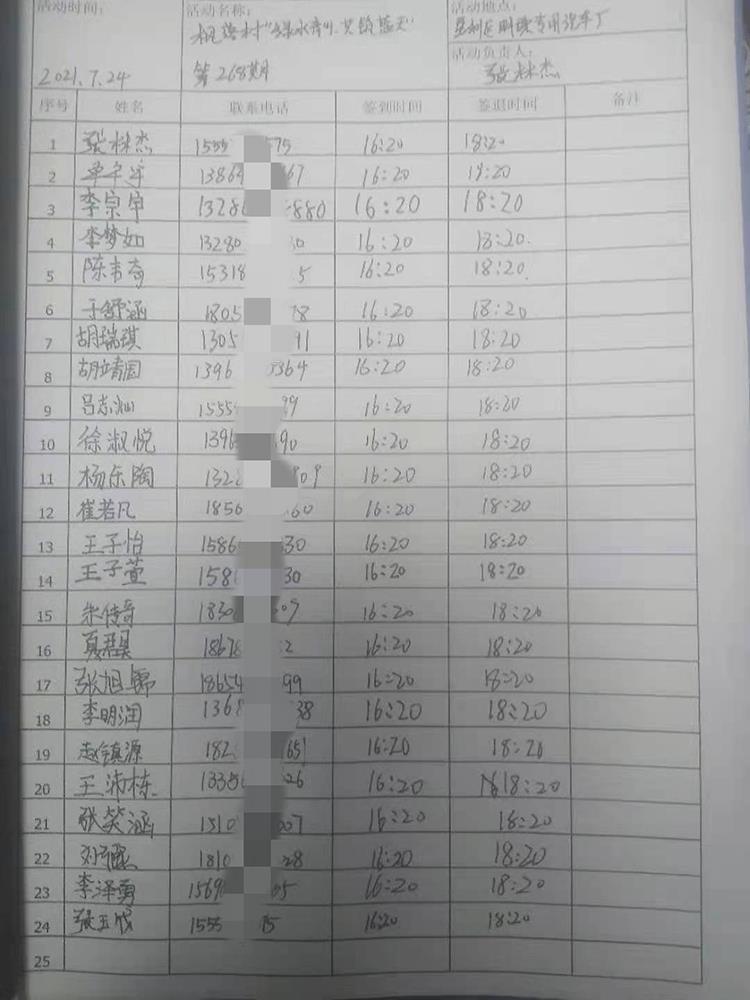 活动时间: 活动名称: 活动地点:
活动负责人:
2021.7.24 第268期 张林杰
序号 姓名 联系电话 签到时间 签退时间 备注
1 张林杰 1555 75 16:20 18:20
2 13864 67 16:20 18:20
3 李宗 1328 880 16:20 18:20
4 李梦如 13280 0 16:20 18:20
5 陈韦 15318 5 16:20 18:20
6 于舒涵 1805 78 16:20 18:20
7 胡瑞琪 1305 91 16:20 18:20
8 胡靖国 1396 364 16:20 18:20
9 吕志 1555 99 16:20 18:20
10 徐淑悦 1396 90 16:20 18:20
11 杨乐陶 132 09 16:20 18:20
12 崔若凡 1856 60 16:20 18:20
13 王子怡 1586 30 16:20 18:20
14 王子萱 158 30 16:20 18:20
15 朱传奇 1830 09 16:20 18:20
16 夏君昊 1867 2 16:20 18:20
17 张旭 18654 99 16:20 18:20
18 李明润 136 38 16:20 18:20
19 赵镇源 182 65 16:20 18:20
20 王沛栋 1335 26 16:20 18:20
21 张笑涵 1510 07 16:20 18:20
22 1810 28 16:20 18:20
23 李泽勇 1569 05 16:20 18:20
24 张玉 1555 15 16:20 18:20
25